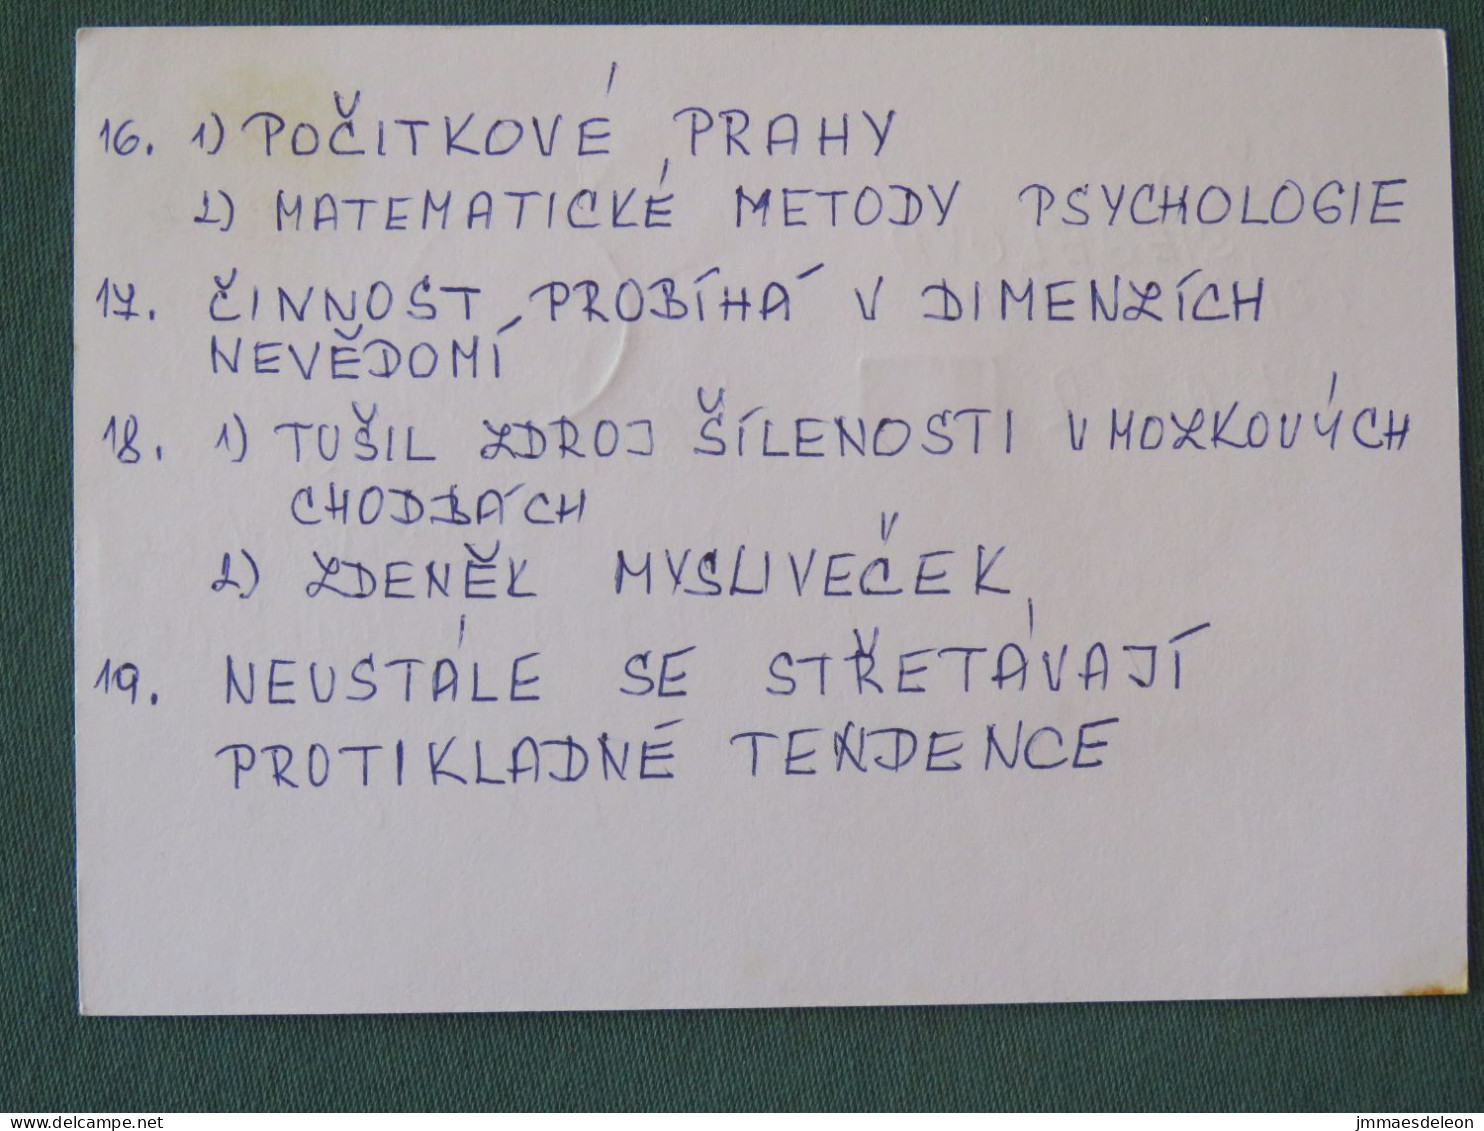 16. 1) POČITKOVÉ PRAHY
2) MATEMATICKÉ METODY PSYCHOLOGIE
17. ČINNOST PROBÍHÁ V DIMENZÍCH
NEVĚDOMÍ
18. 1) TUŠIL ZDROJ ŠÍLENOSTI V MOZKOVÝCH
CHODBÁCH
2) ZDENĚK MYSLIVEČEK
19. NEUSTÁLE SE STŘETÁVAJÍ
PROTIKLADNÉ TENDENCE
delcampe.net
jmmaesdeleon